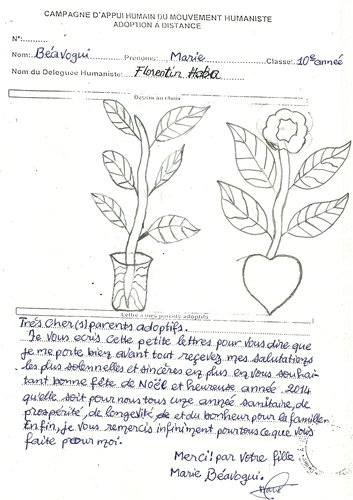 CAMPAGNE D'APPUI HUMAIN DU MOUVEMENT HUMANISTE
ADOPTION À DISTANCE
N°:
Nom: Béavogui Prénoms: Marie Classe: 10e année
Nom du Déléguée Humaniste: Florentin Haba
Dessin au choix
Lettre à mes parents adoptifs
Très Cher(s) parents adoptifs.
Je vous ecris cette petite lettres pour vous dire que
je me porte bien avant tout reçevez mes salutations
les plus solennelles et sincères en plus en vous souhai-
tant bonne fête de Noël et heureuse année 2014
qu'elle soit pour nous tous une année sanitaire, de
prospérité, de longevité et du bonheur pour la famille
Enfin, je vous remercis infiniment pour tous ce que vous
faite pour moi.
Merci! par votre fille
Marie Béavogui.